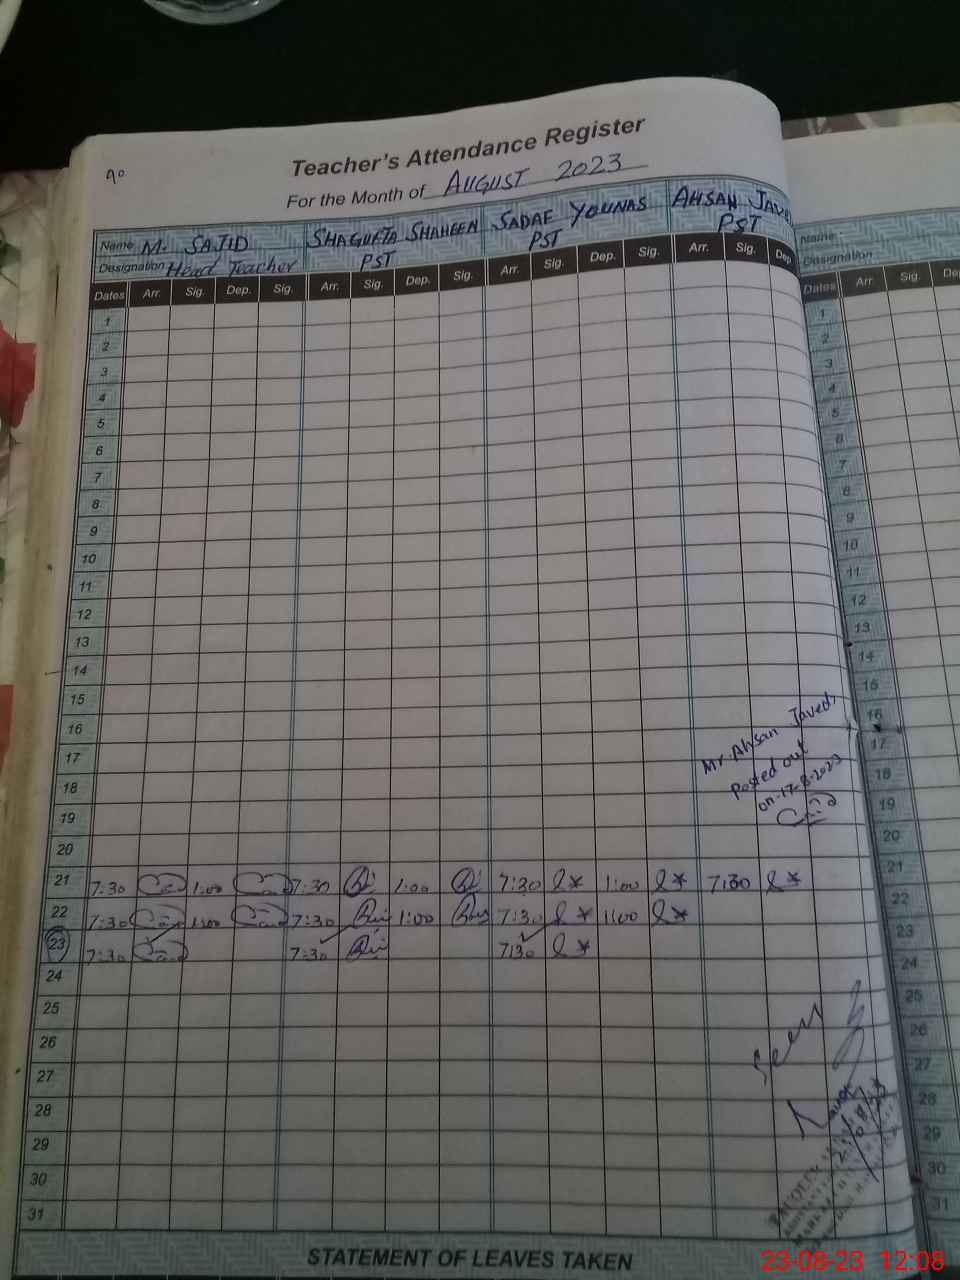 90
Teacher's Attendance Register
For the Month of AUGUST 2023
Name M. SAJID SHAGUFTA SHAHEEN SADAF YOUNAS AHSAN JAVED
Designation Head Teacher PST PST PST
Dates Arr. Sig. Dep. Sig. Arr. Sig. Dep. Sig. Arr. Sig. Dep. Sig. Arr. Sig. Dep.
1
2
3
4
5
6
7
8
9
10
11
12
13
14
15
16
17
18
19
20
Mr. Ahsan Javed,
Posted out
on-17-8-2023
21 7:30 1:00 7:30 1:00 7:30 1:00 7:30
22 7:30 1:00 7:30 1:00 7:30 1:00
23 7:30 7:30 7:30
24
25
26
27
28
29
30
31
Seen
STATEMENT OF LEAVES TAKEN
Name
Designation
Dates Arr. Sig.
1
2
3
4
5
6
7
8
9
10
11
12
13
14
15
16
17
18
19
20
21
22
23
24
25
26
27
28
29
30
31
23-08-23 12:08